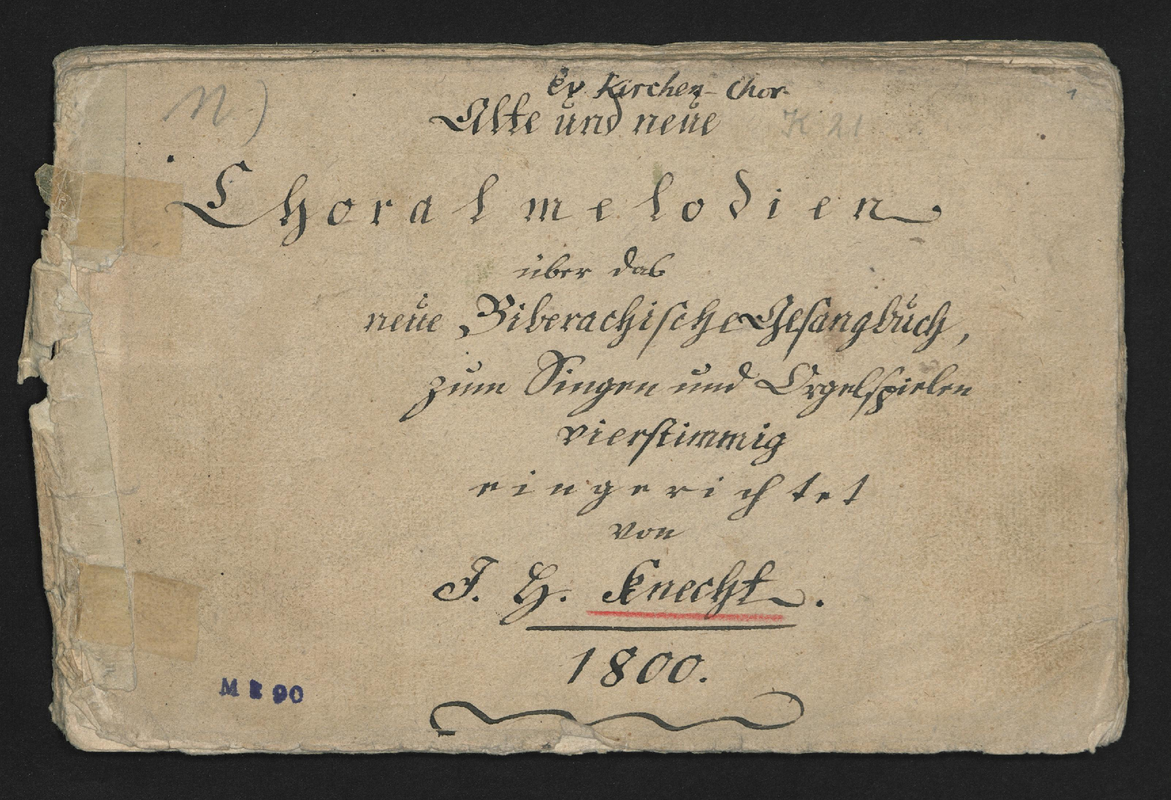 Ev Kirchen-Chor
n)
Alte und neue
K 21
1
Choralmelodien
über das
neue Biberachische Gesangbuch,
zum Singen und Orgelspielen
vierstimmig
eingerichtet
von
J. H. Knecht.
1800.
M 90